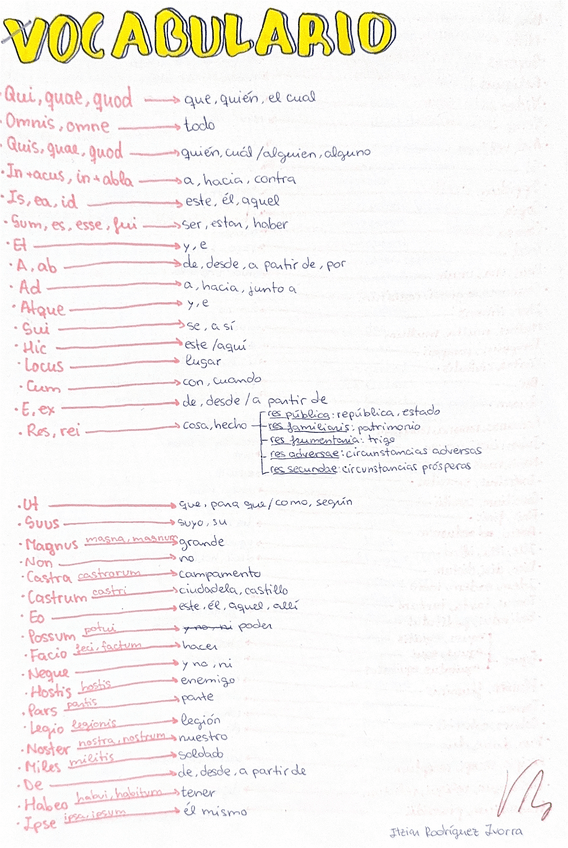 VOCABULARIO
Qui, quae, quod → que, quién, el cual
Omnis, omne → todo
Quis, quae, quod → quién, cuál / alguien, alguno
· In + acus, in + abla → a, hacia, contra
· Is, ea, id → este, él, aquel
· Sum, es, esse, fui → ser, estar, haber
· Et → y, e
· A, ab → de, desde, a partir de, por
· Ad → a, hacia, junto a
· Atque → y, e
· Sui → se, a sí
· Hic → este / aquí
· Locus → lugar
· Cum → con, cuando
· E, ex → de, desde / a partir de
· Res, rei → cosa, hecho
res pública: república, estado
res familiaris: patrimonio
res frumentaria: trigo
res adversae: circunstancias adversas
res secundae: circunstancias prósperas
· Ut → que, para que / como, según
· Suus → suyo, su
· Magnus magna, magnus → grande
· Non → no
· Castra castrorum → campamento
· Castrum castri → ciudadela, castillo
· Eo → este, él, aquel, allí
· Possum potui → y no, ni poder
· Facio feci, factum → hacer
· Neque → y no, ni
· Hostis hostis → enemigo
· Pars partis → parte
· Legio legionis → legión
· Noster nostra, nostrum → nuestro
· Miles militis → soldado
· De → de, desde, a partir de
· Habeo habui, habitum → tener
· Ipse ipsa, ipsum → él mismo
Itziar Rodríguez Ivorra